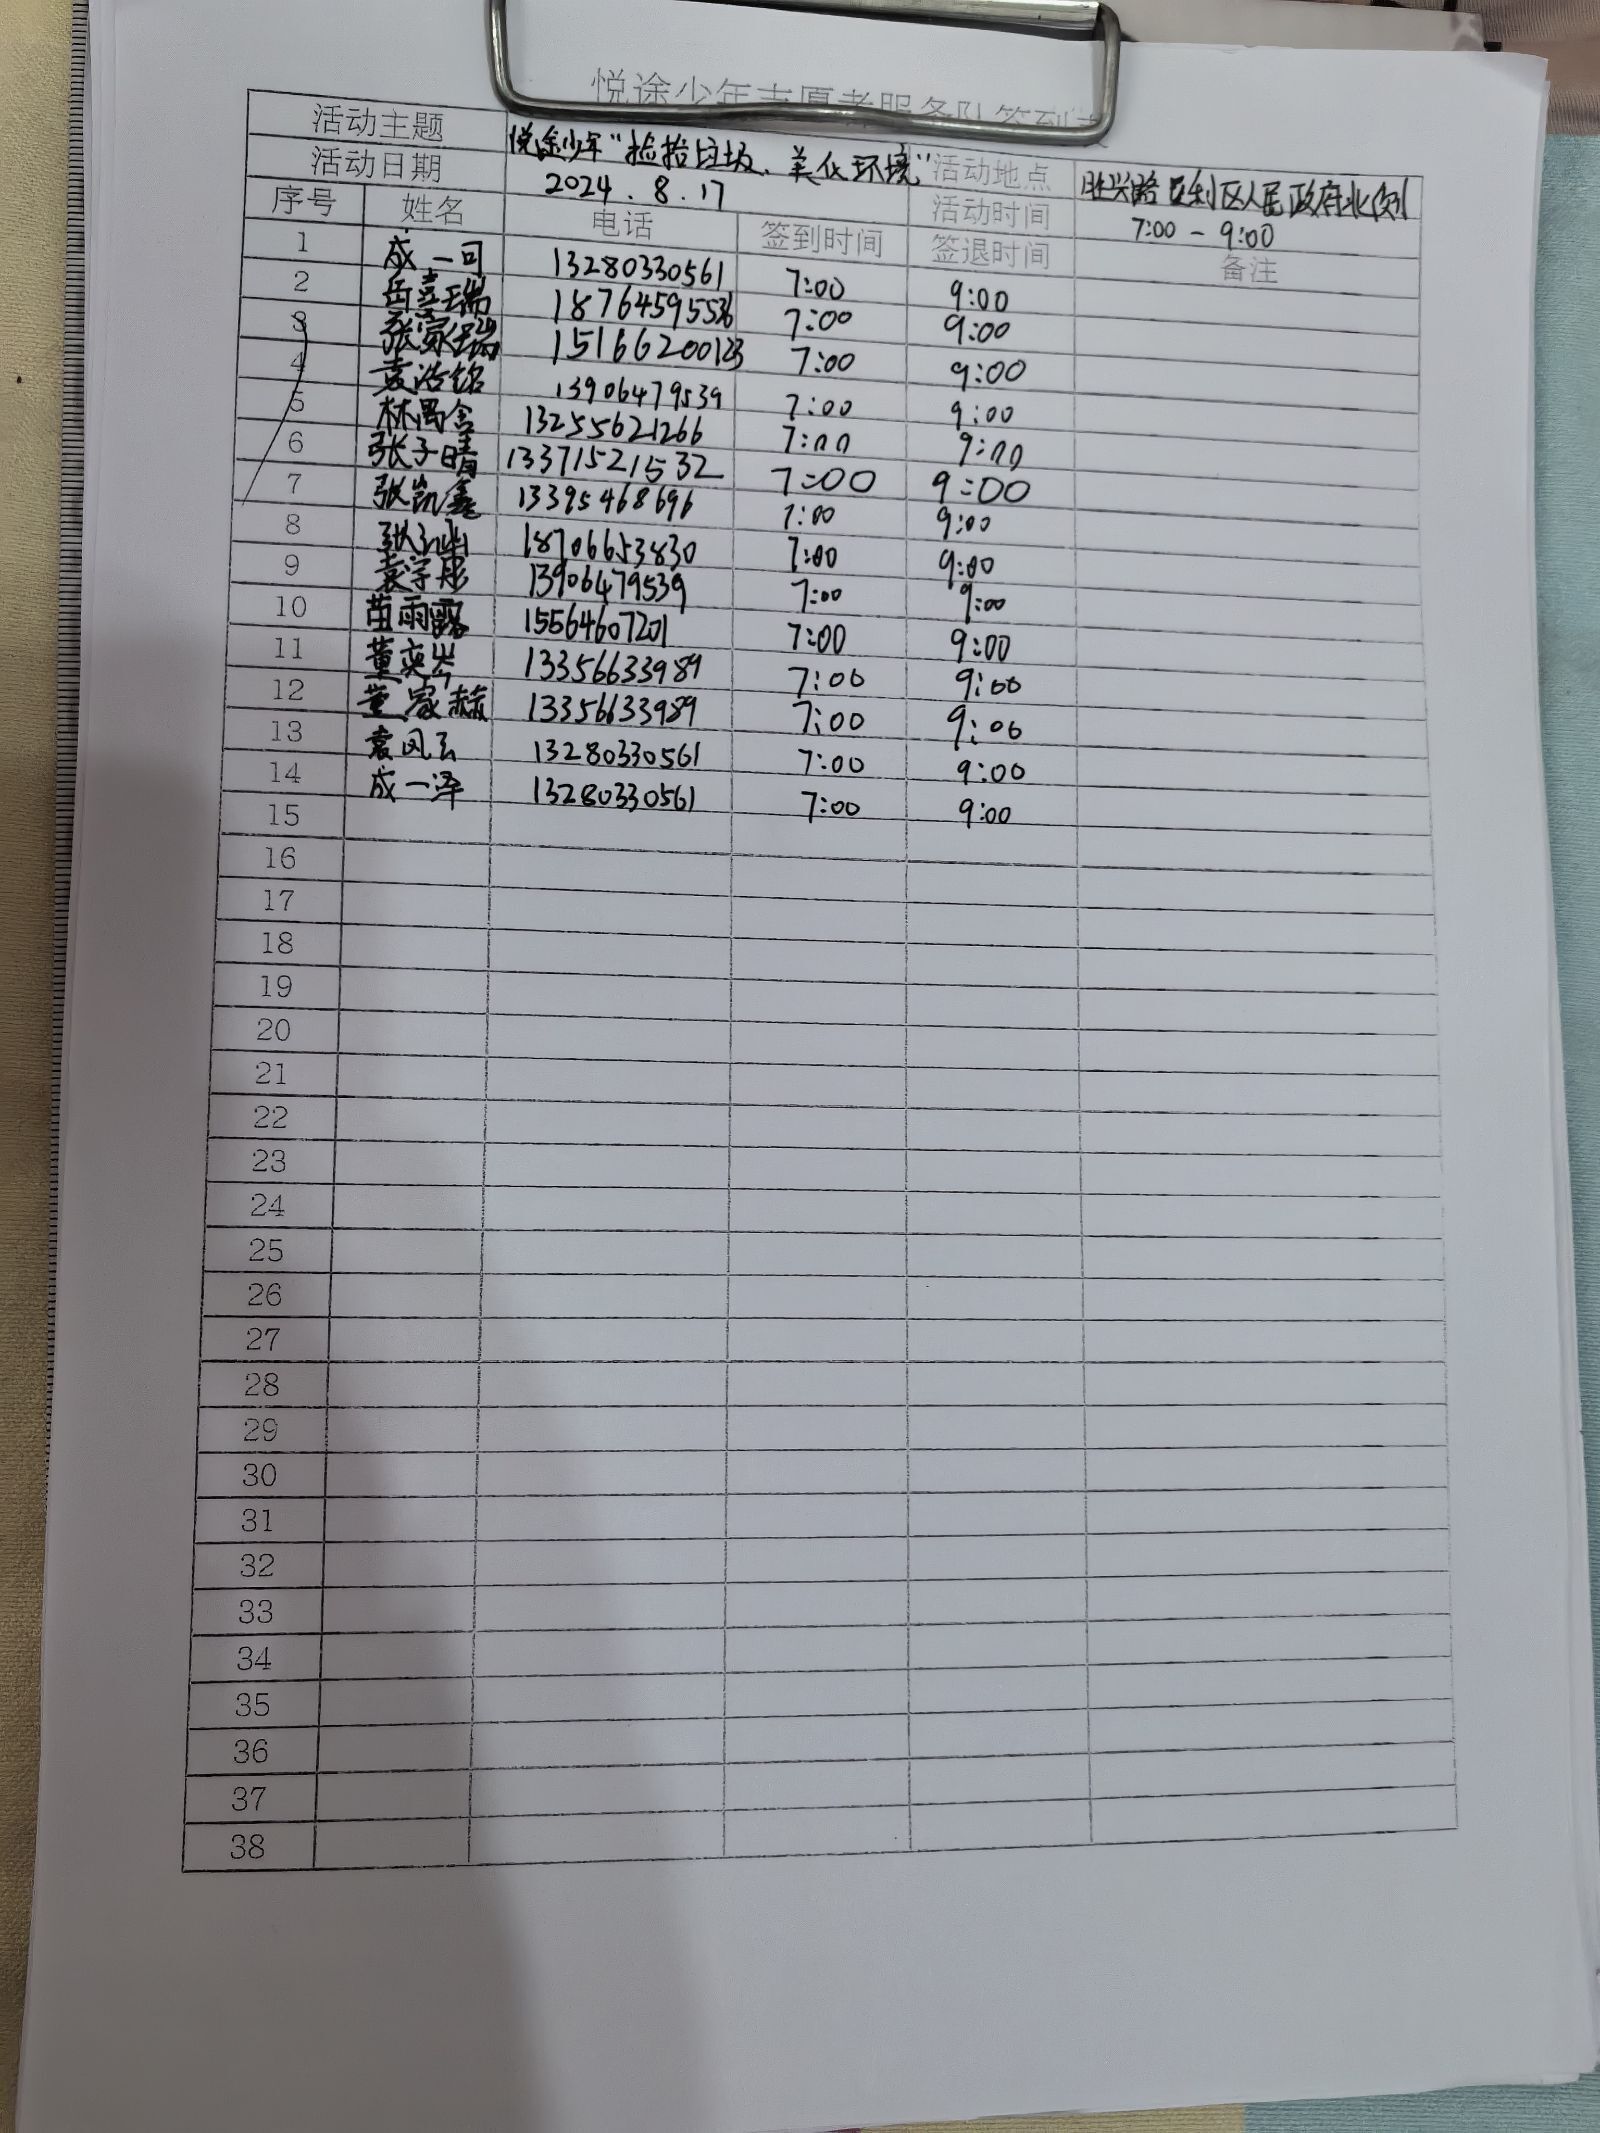 悦途少年志愿者服务队签到表
活动主题 悦途少年"捡拾垃圾、美化环境" 活动地点 胜兴路垦利区人民政府北侧
活动日期 2024.8.17 活动时间 7:00-9:00
序号 姓名 电话 签到时间 签退时间 备注
1 成一可 13280330561 7:00 9:00
2 岳熹瑞 18764595536 7:00 9:00
3 张家瑞 15166200123 7:00 9:00
4 袁浩铭 13906479539 7:00 9:00
5 林禺含 13255621266 7:00 9:00
6 张子晴 13371521532 7:00 9:00
7 张凯鑫 13395468696 7:00 9:00
8 18706653830 7:00 9:00
9 袁宇彤 13906479539 7:00 9:00
10 苗雨露 15564607201 7:00 9:00
11 董奕岩 13356633989 7:00 9:00
12 董家赫 13356633989 7:00 9:00
13 袁凤云 13280330561 7:00 9:00
14 成一泽 13280330561 7:00 9:00
15
16
17
18
19
20
21
22
23
24
25
26
27
28
29
30
31
32
33
34
35
36
37
38